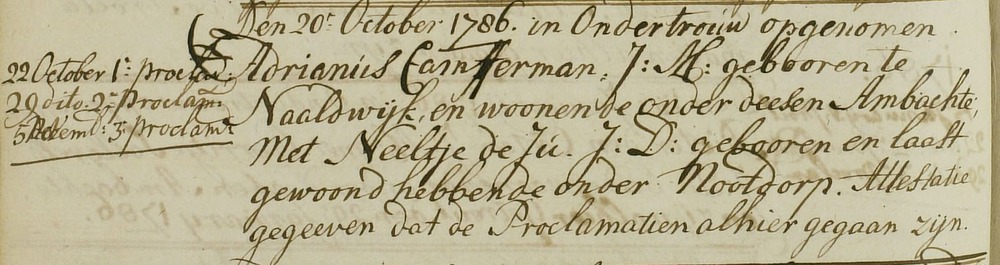 Den 20n. October 1786. in Ondertrouw opgenomen
Adrianus Camfferman, J: M: gebooren te
Naaldwijk, en woonende onder deesen Ambachte,
Met Neeltje de Jú. J: D: gebooren en laast
gewoond hebbende onder Nootdorp. Attestatie
gegeeven dat de Proclamatien alhier gegaan zijn.
22 October 1e. proclam:
29 dito. 2e. Proclam:
5 Novemb: 3e. proclam: